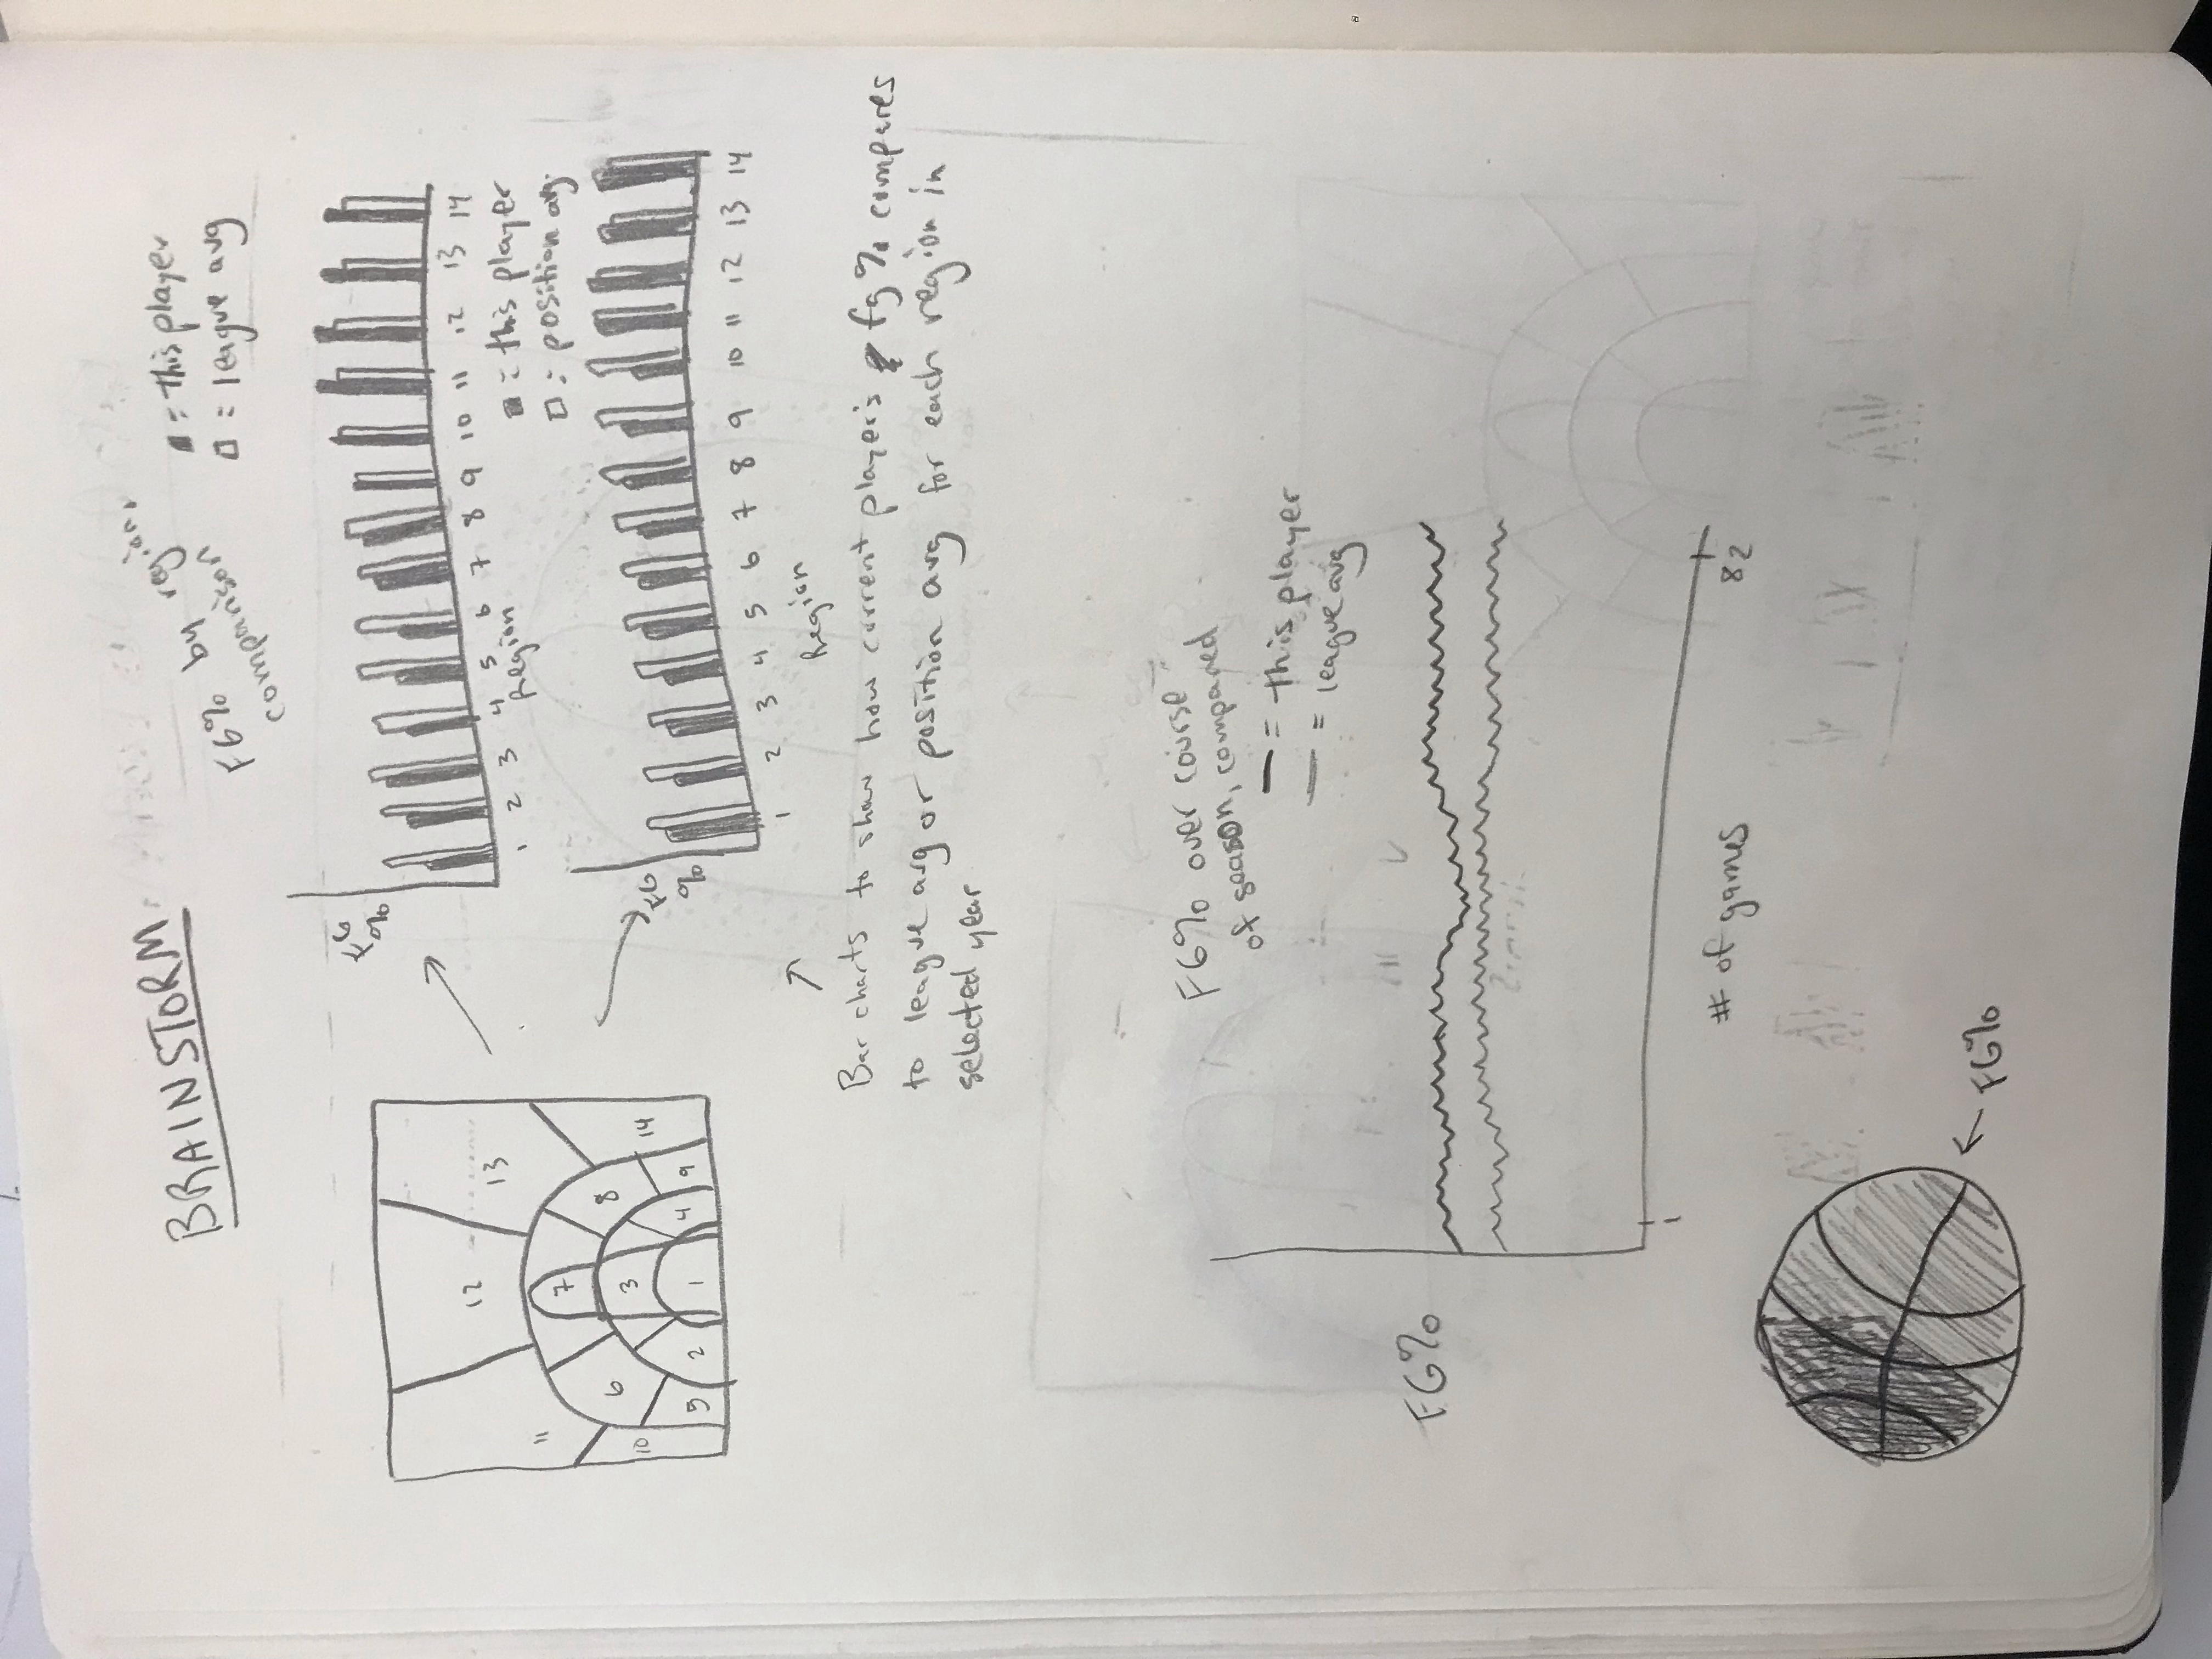 BRAINSTORM
FG% by region,
comparison
= this player
= league avg
FG
%
1 2 3 4 5 6 7 8 9 10 11 12 13 14
Region
11 12 13
10 6 7 8 14
5 2 3 4 9
1
= this player
= position avg.
FG
%
1 2 3 4 5 6 7 8 9 10 11 12 13 14
Region
Bar charts to show how current player's fg% compares
to league avg or position avg for each region in
selected year
FG% over course
of season, compared
= this player
= league avg
FG%
1 82
# of games
FG%